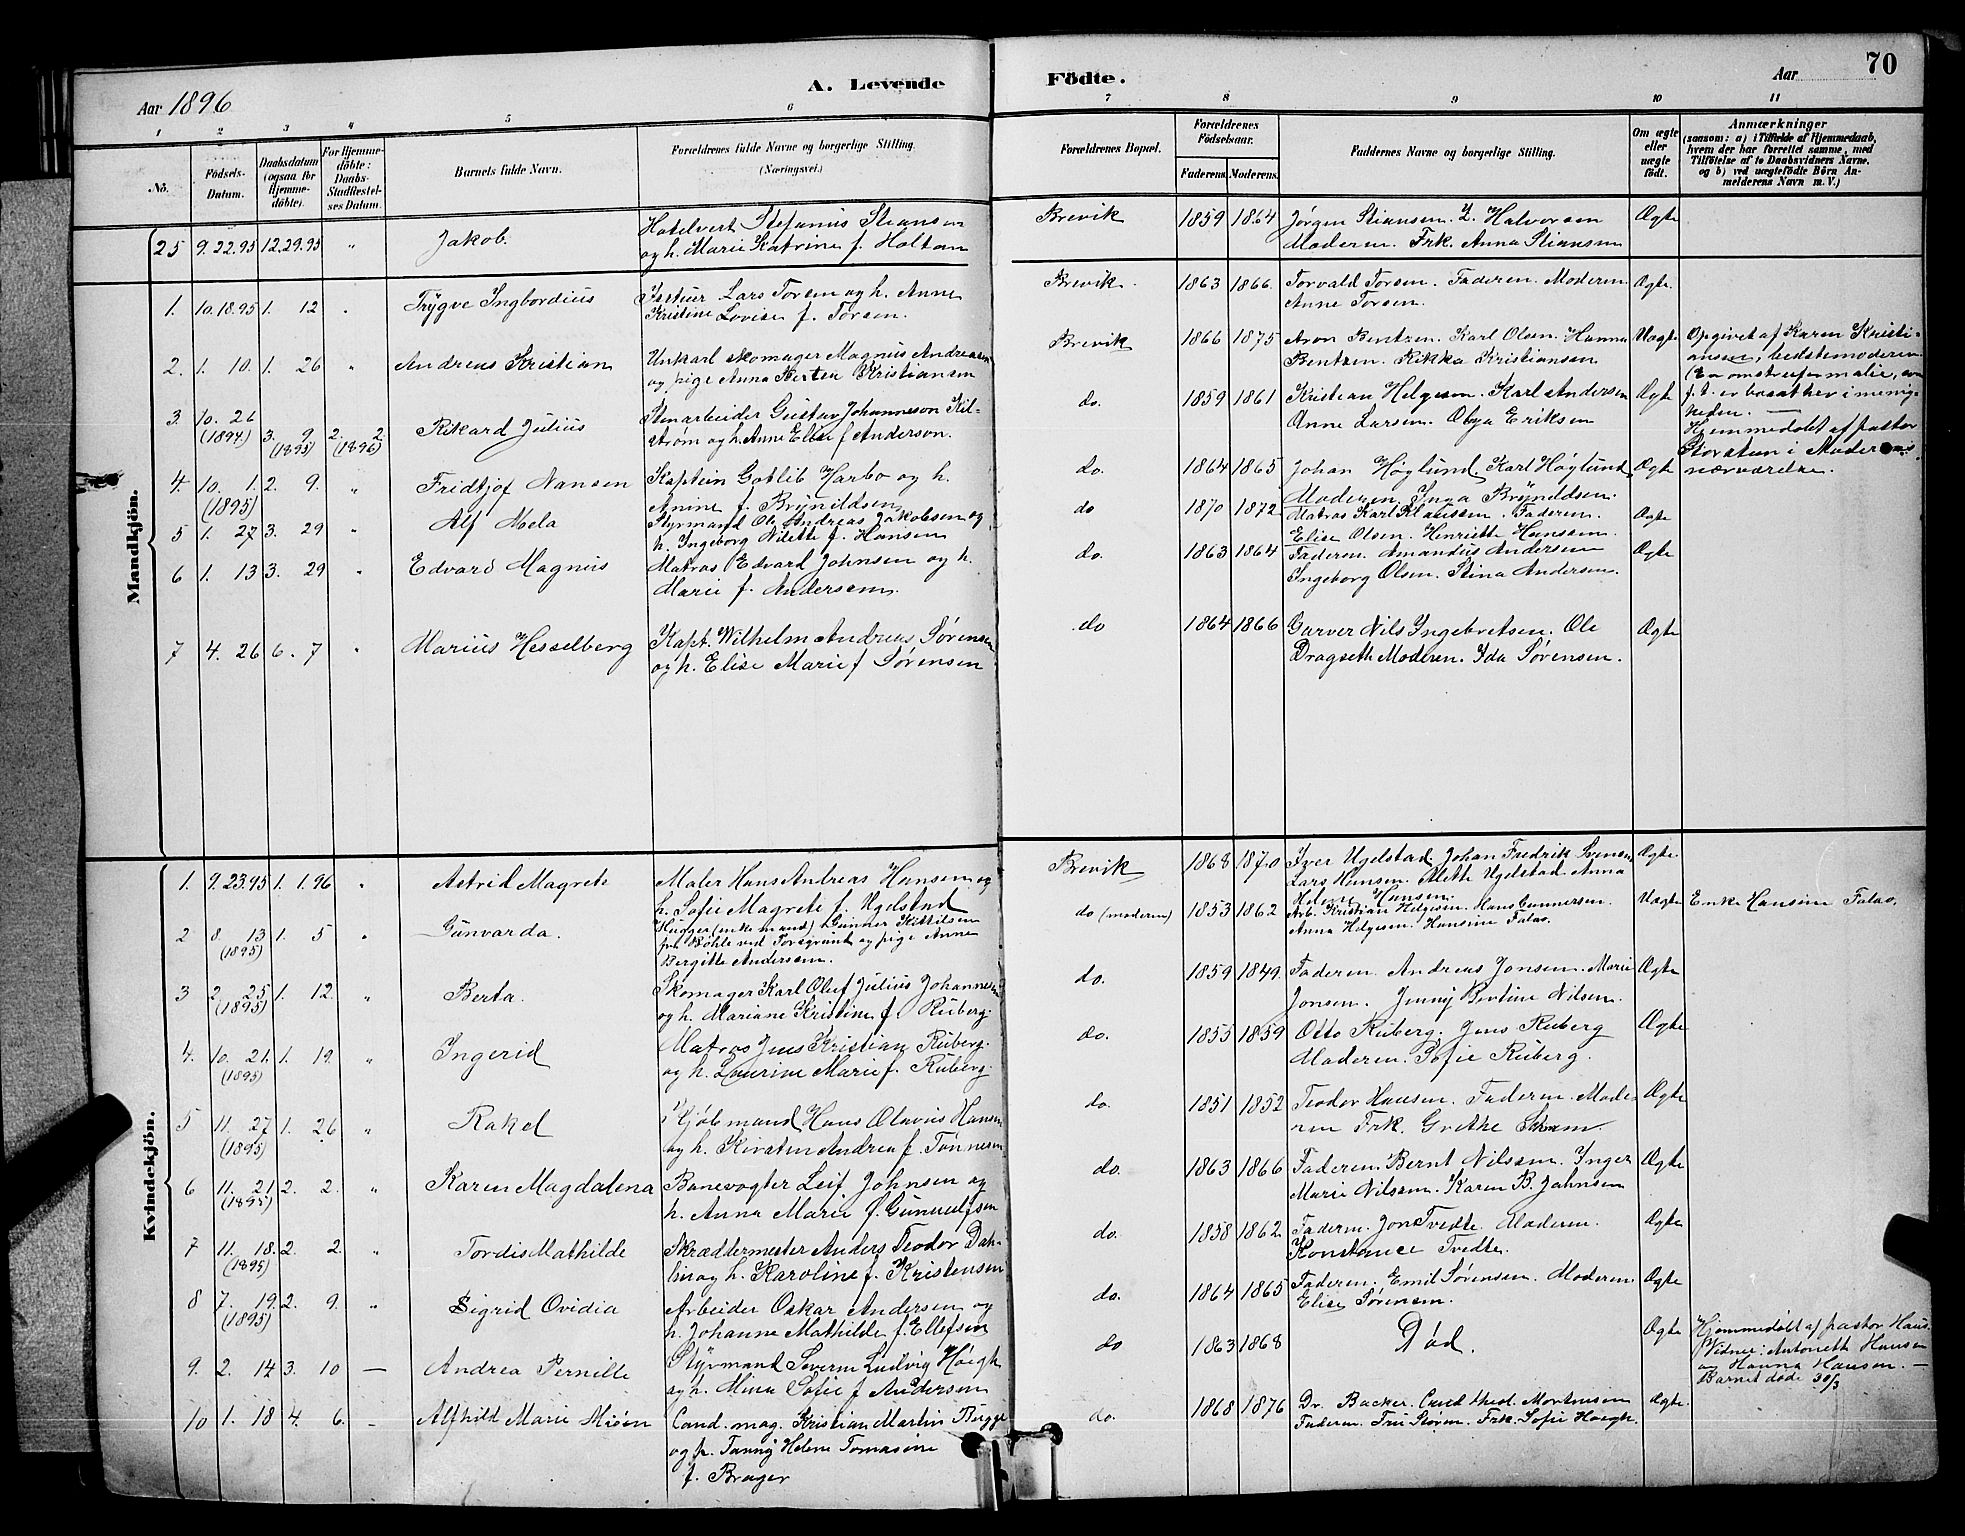 70
A. Levende Födte.
Aar 1896
Aar
1 2 3 4 5 6 7 8 9 10 11
No.
Födsels-Datum.
Daabsdatum (ogsaa for Hjemmedöbte).
For Hjemmedöbte: Daabs-Stadfæstelses Datum.
Barnets fulde Navn.
Forældrenes fulde Navne og borgerlige Stilling.
(Næringsvei.)
Forældrenes Bopæl.
Forældrenes Födselsaar.
Faderens. Moderens.
Faddernes Navne og borgerlige Stilling.
Om ægte eller uægte födt.
Anmærkninger
(saasom: a) i Tilfælde af Hjemmedaab, hvem der har forrettet samme, med Tilföielse af to Daabsvidners Navne. og b) ved uægtefödte Börn Anmelderens Navn m. V.)
25 9.22.95 12.29.95 " Jakob. Hotelvert Stefanus Stiansen
og h. Marie Katrine f. Holtan
Brevik 1859 1864 Jörgen Stiansen. L. Halvorsen
Moderen. Frk. Anna Stiansen
Ægte
Mandkjön.
1. 10.18.95 1. 12 " Trygve Ingbordius
Lars Torsen og h. Anne
Kristine Lovise f. Torsen.
Brevik. 1863 1866. Torvald Torsen. Faderen. Moderen
Anne Torsen.
Ægte
2. 1. 10. 1. 26 " Andreas Kristian Unkarl skomager Magnus Andreassen
og pige Anna Kristiansen
Brevik 1866 1875 Aron Bentzen. Karl Olsen. Hanna
Bentzen. Rikka Kristiansen
Uægte Opgivet af Karen Kristiansen, bedstemoderen.
3. 10. 26 (1894) 3. 9 (1895) 2. 2 (1896) Rikard Julius Stenarbeider Gustav Johanneson Kilström og h. Anne Elise f Anderson.
do. 1859 1861 Kristian Helgesen. Karl Andersen
Anne Larsen. Olga Eriksen
Ægte
Hjemmedöbt af pastor Storsten i Moderens nærværelse.
4. 10. 1. (1895) 2. 9. " Fridtjof Nansen Kaptein Gotlib Harbo og h.
Anine f. Brynildsen
do. 1864 1865 Johan Höglund. Karl Höglund
Moderen. Inga Brynildsen.
Ægte
5 1. 27 3. 29 " Alf Mela Styrmand Ole Andreas Jakobsen og
h. Ingeborg Nilette f. Hansen
do 1870 1872 Matros Karl Klausen. Faderen.
Elise Olsen. Henriette Hansen.
Ægte
6 1. 13 3. 29 " Edvard Magnus Matros Edvard Johnsen og h.
Marie f. Andersen.
do. 1863 1864 Faderen. Amandus Andersen
Ingeborg Olsen. Stina Andersen.
Ægte
7 4. 26 6. 7 " Marius Hesselberg Kapt. Wilhelm Andreas Sörensen
og h. Elise Marie f Sörensen
do 1864 1866 Garver Nils Ingebretsen. Ole
Dragseth Moderen. Ida Sörensen.
Ægte
Kvindekjön.
1. 9.23.95 1. 1.96 " Astrid Magrete Maler Hans Andreas Hansen og
h. Sofie Magrete f. Ugelstad
Brevik 1868 1870 Iver Ugelstad. Johan Fredrik Svensen
Lars Hansen. Alette Ugelstad. Anna
Helene Hansen.
Ægte
2 8. 13 (1895) 1. 5 " Gunvarda. Hugger (enkemand) Gunder Kittilsen
fra Böhle ved Porsgrund og pige Anne
Bergitte Andersen.
do (moderen) 1853 1862 Arb. Kristian Helgesen. Hans Gunnersen.
Anna Helgesen. Hansine Falas.
Uægte Enke Hansine Falas.
3 2. 25 (1895) 1. 12. " Berta. Skomager Karl Oluf Julius Johannesen
og h. Mariane Kristine f. Ruberg.
do. 1859 1849. Faderen. Andreas Jonsen. Marie
Jonsen. Jenny Bertine Nilsen.
Ægte
4. 10. 21. (1895) 1. 19. " Ingerid Matros Jens Kristian Ruberg.
og h. Laurine Marie f. Ruberg.
do. 1855 1859 Otto Ruberg. Jens Ruberg
Moderen. Sofie Ruberg.
Ægte
5 11. 27 (1895) 1. 26 " Rakel Kjöbmand Hans Olavus Hansen
og h. Kirsten Andrea f. Tönnesen
do. 1851 1852 Teodor Hansen. Faderen. Moderen Frk. Grethe
Ægte
6 11. 21 (1895) 2. 2. " Karen Magdalena Banevogter Leif Johnsen og
h. Anna Marie f. Gunnulfsen
do. 1863 1866 Faderen. Bernt Nilsen. Inger
Marie Nilsen. Karen B. Jahnsen
Ægte
7 11. 18. (1895) 2. 2. " Tordis Mathilde Skræddermester Anders Teodor Dahlin og h. Karoline f. Kristensen
do. 1858 1862. Faderen. Jon Tvedte. Moderen.
Konstance Tvedte.
Ægte
8 7. 19. (1895) 2. 9. " Sigrid Ovidia Arbeider Oskar Andersen og
h. Johanne Mathilde f. Ellefsen
do. 1864 1865 Faderen. Emil Sörensen. Moderen.
Elise Sörensen.
Ægte
9. 2. 14 3. 10 — Andrea Pernille Styrmand Severin Ludvig Höegh
og h. Mina Sofie f Andersen
do 1863 1868 Död.
Ægte Hjemmedöbt af pastor Hans.
Vidner: Antonette Hansen
og Hanna Hansen. —
Barnet döde 30/3
10 1. 18 4. 6. — Alfhild Marie Cand. mag. Kristian Martin Bugge
og h. Fanny Helene Tomasine
f. Brager
do. 1868 1876 Dr. Backer. Cand. theol. Mortensen
Faderen. Fru Storm. Frk. Sofie Höegh.
Ægte